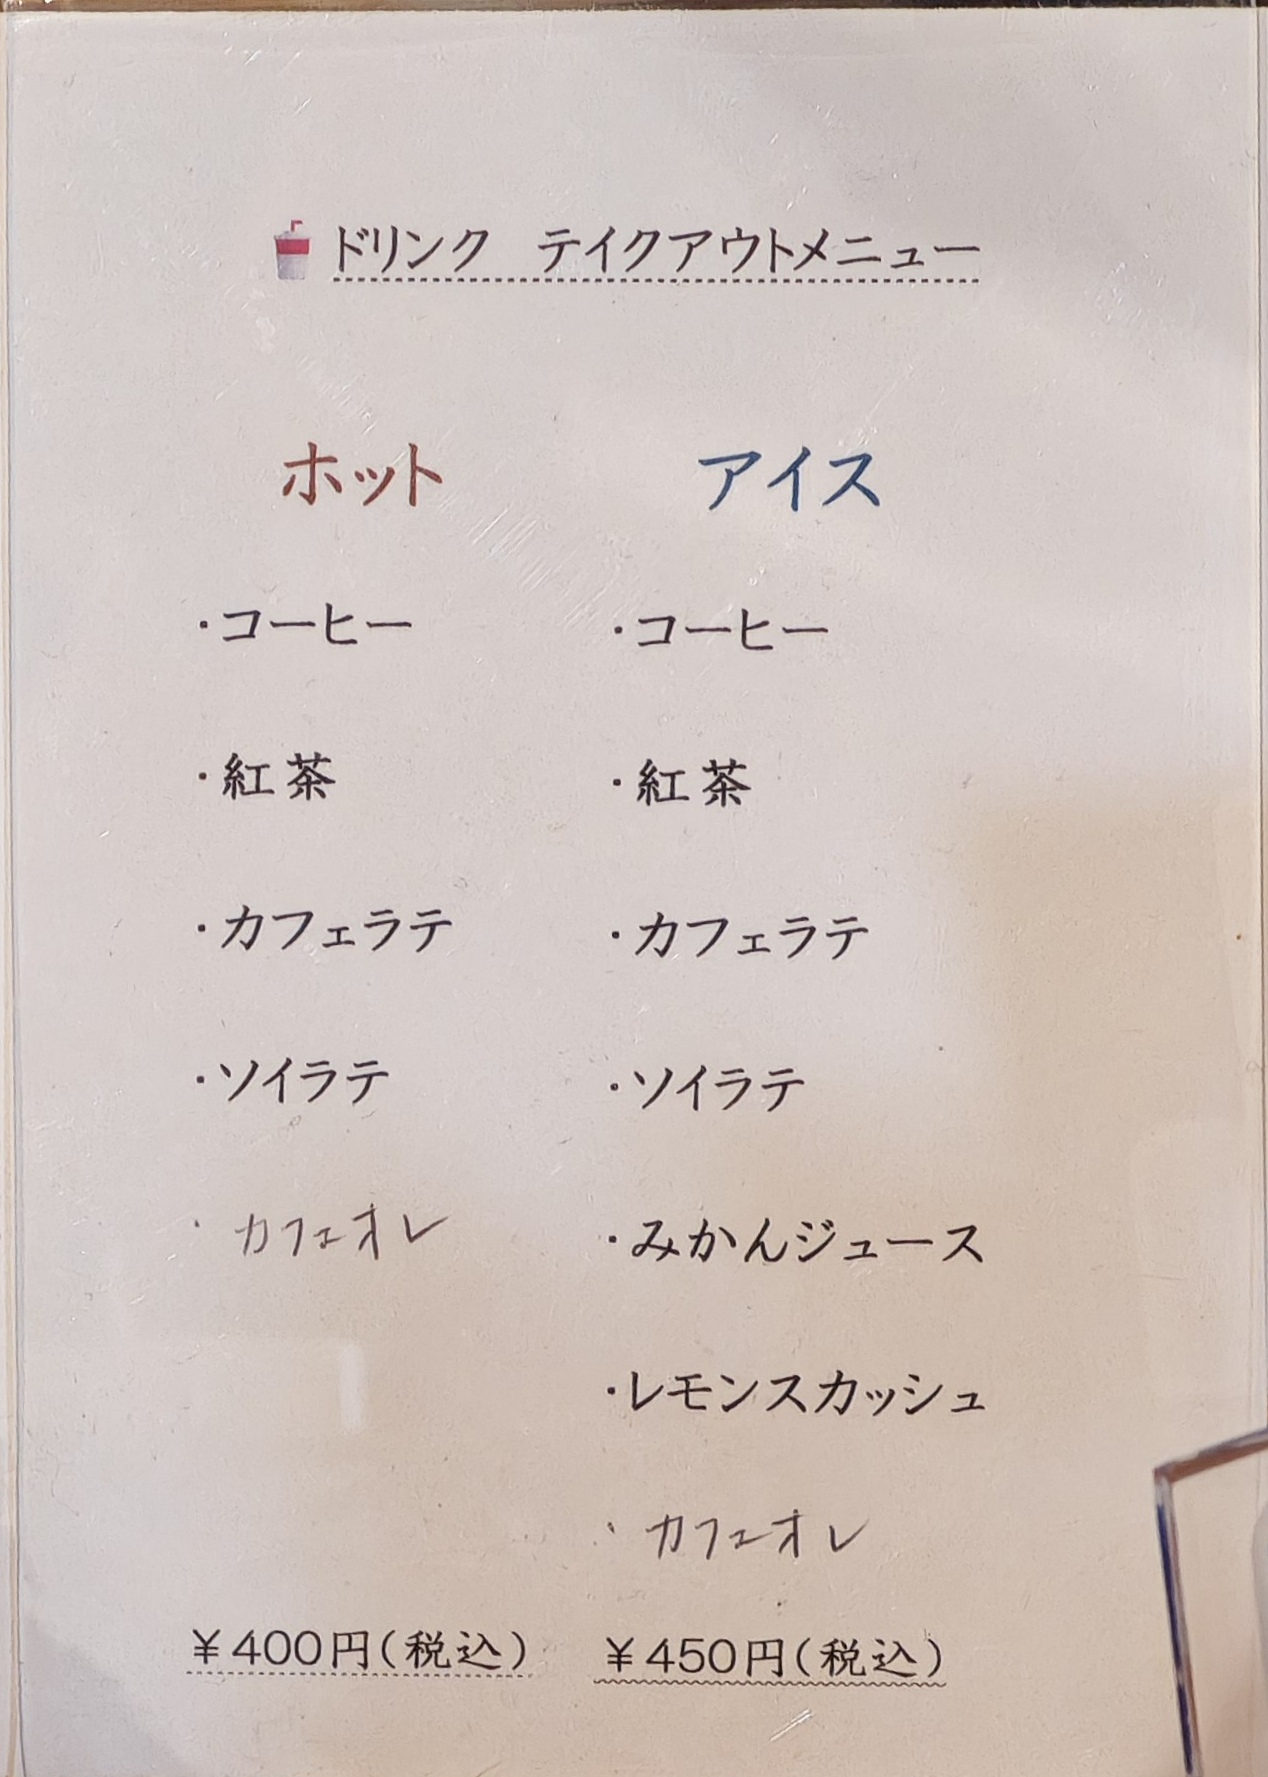 ドリンク　テイクアウトメニュー
ホット
・コーヒー
・紅茶
・カフェラテ
・ソイラテ
・カフェオレ
￥400円(税込)
アイス
・コーヒー
・紅茶
・カフェラテ
・ソイラテ
・みかんジュース
・レモンスカッシュ
・カフェオレ
￥450円(税込)